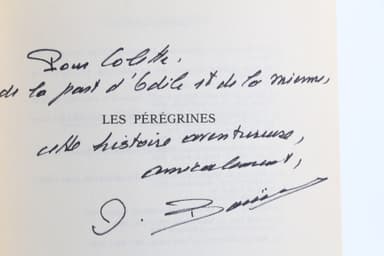 Pour Colette,
de la part d'Odile et de la mienne,
LES PÉRÉGRINES
cette histoire aventureuse,
amicalement,
J. Bourin